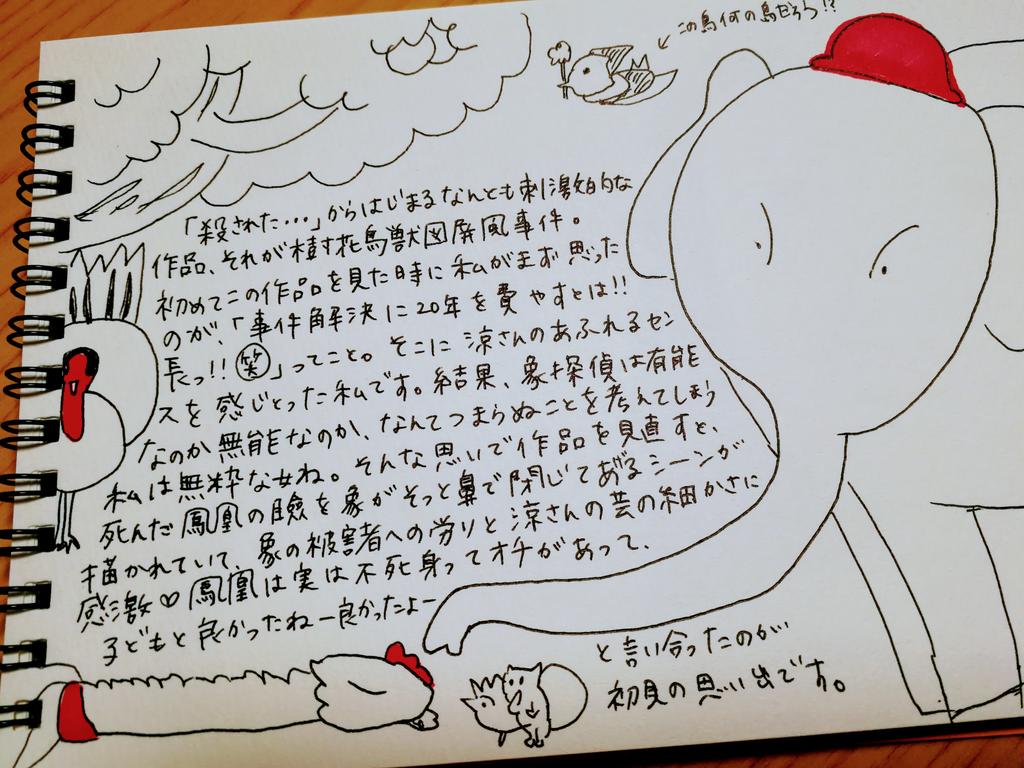 この鳥何の鳥だろう!?
「殺された…」からはじまるなんとも刺激的な
作品、それが樹す花鳥獣図屏風事件。
初めてこの作品を見た時に私がまず思った
のが、「事件解決に20年を費やすとは!!
長っ!!笑」ってこと。そこに涼さんのあふれるセン
スを感じとった私です。結果、象探偵は有能
なのか無能なのか、なんてつまらぬことを考えてしまう
私は無粋な女ね。そんな思いで作品を見直すと、
死んだ鳳凰の瞼を象がそっと鼻で閉じてあげるシーンが
描かれていて、象の被害者への労りと涼さんの芸の細かさに
感激♡鳳凰は実は不死身ってオチがあって、
子どもと良かったねー良かったよー
と言い合ったのが
初見の思い出です。